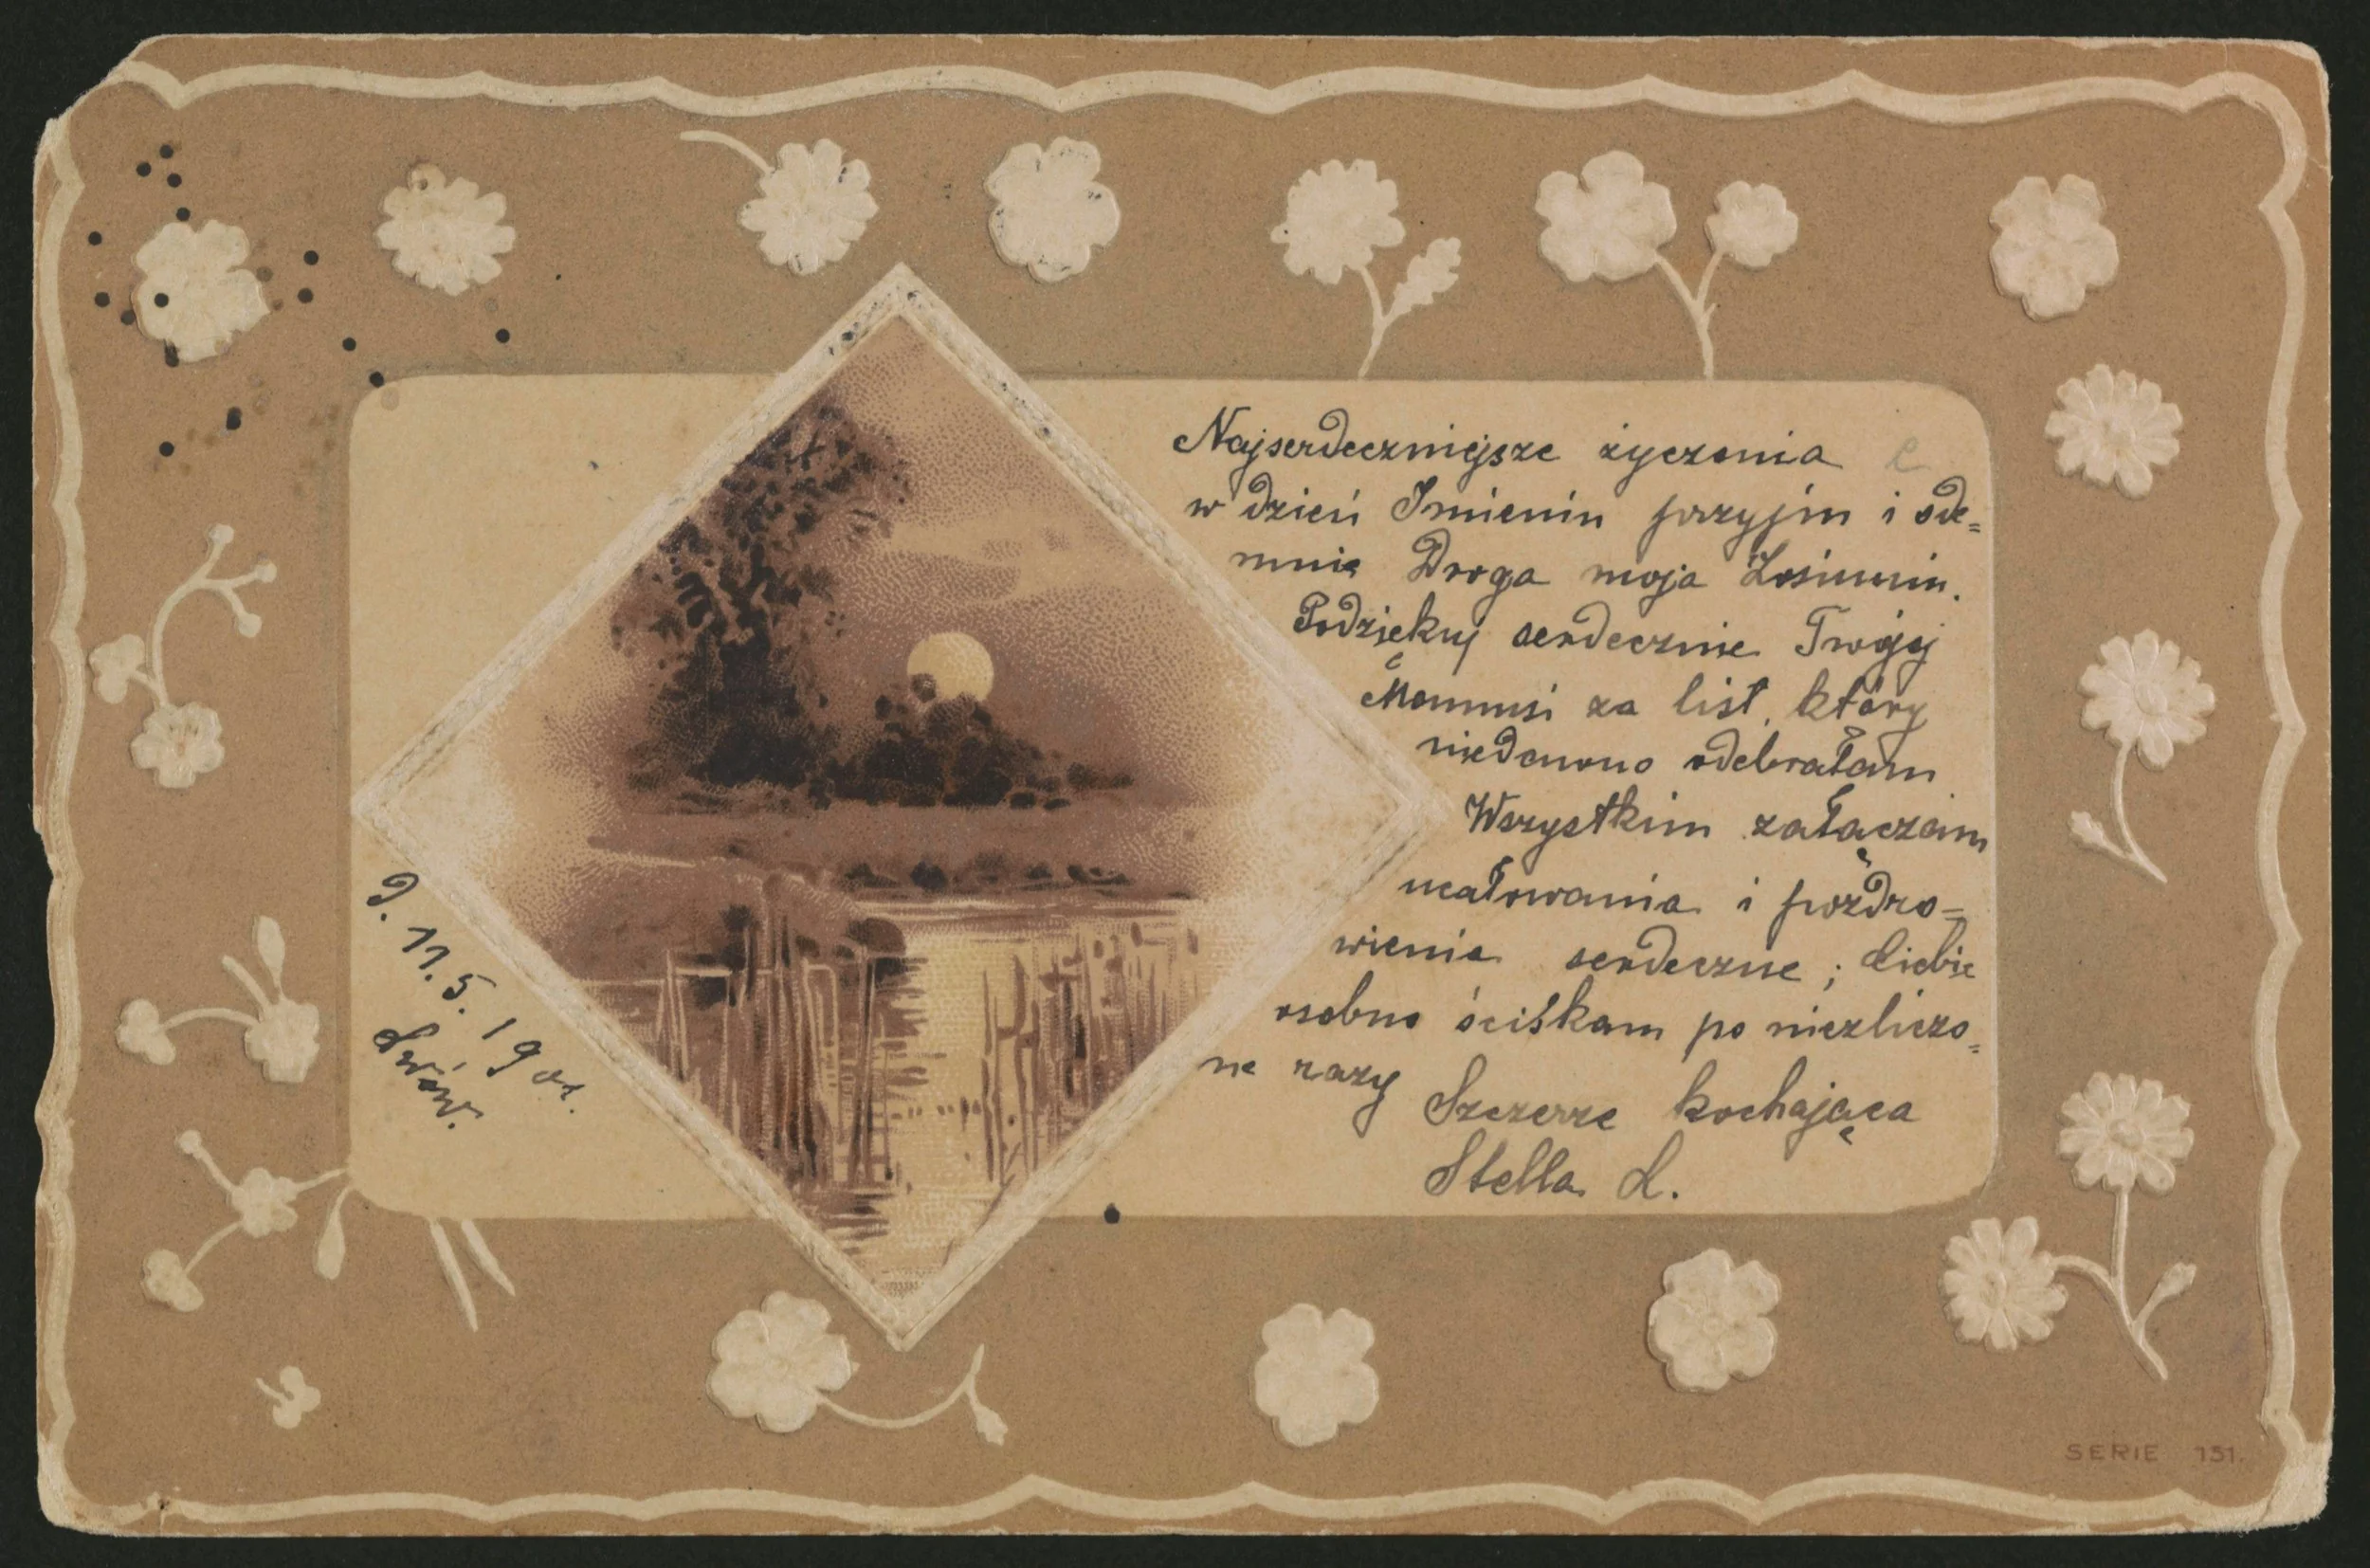 Najserdeczniejsze życzenia
w dzień Imienin przyjm i ode=
mnie Droga moja Zosiuniu.
Podziękuj serdecznie Twojej
Mamusi za list, który
niedawno odebrałam
Wszystkim załączam
ucałowania i pozdro=
wienia serdeczne; Ciebie
osobno ściskam po niezliczo=
ne razy
Szczerze kochająca
Stella L.
D. 11.5.1901.
Lwów.
SERIE 151.